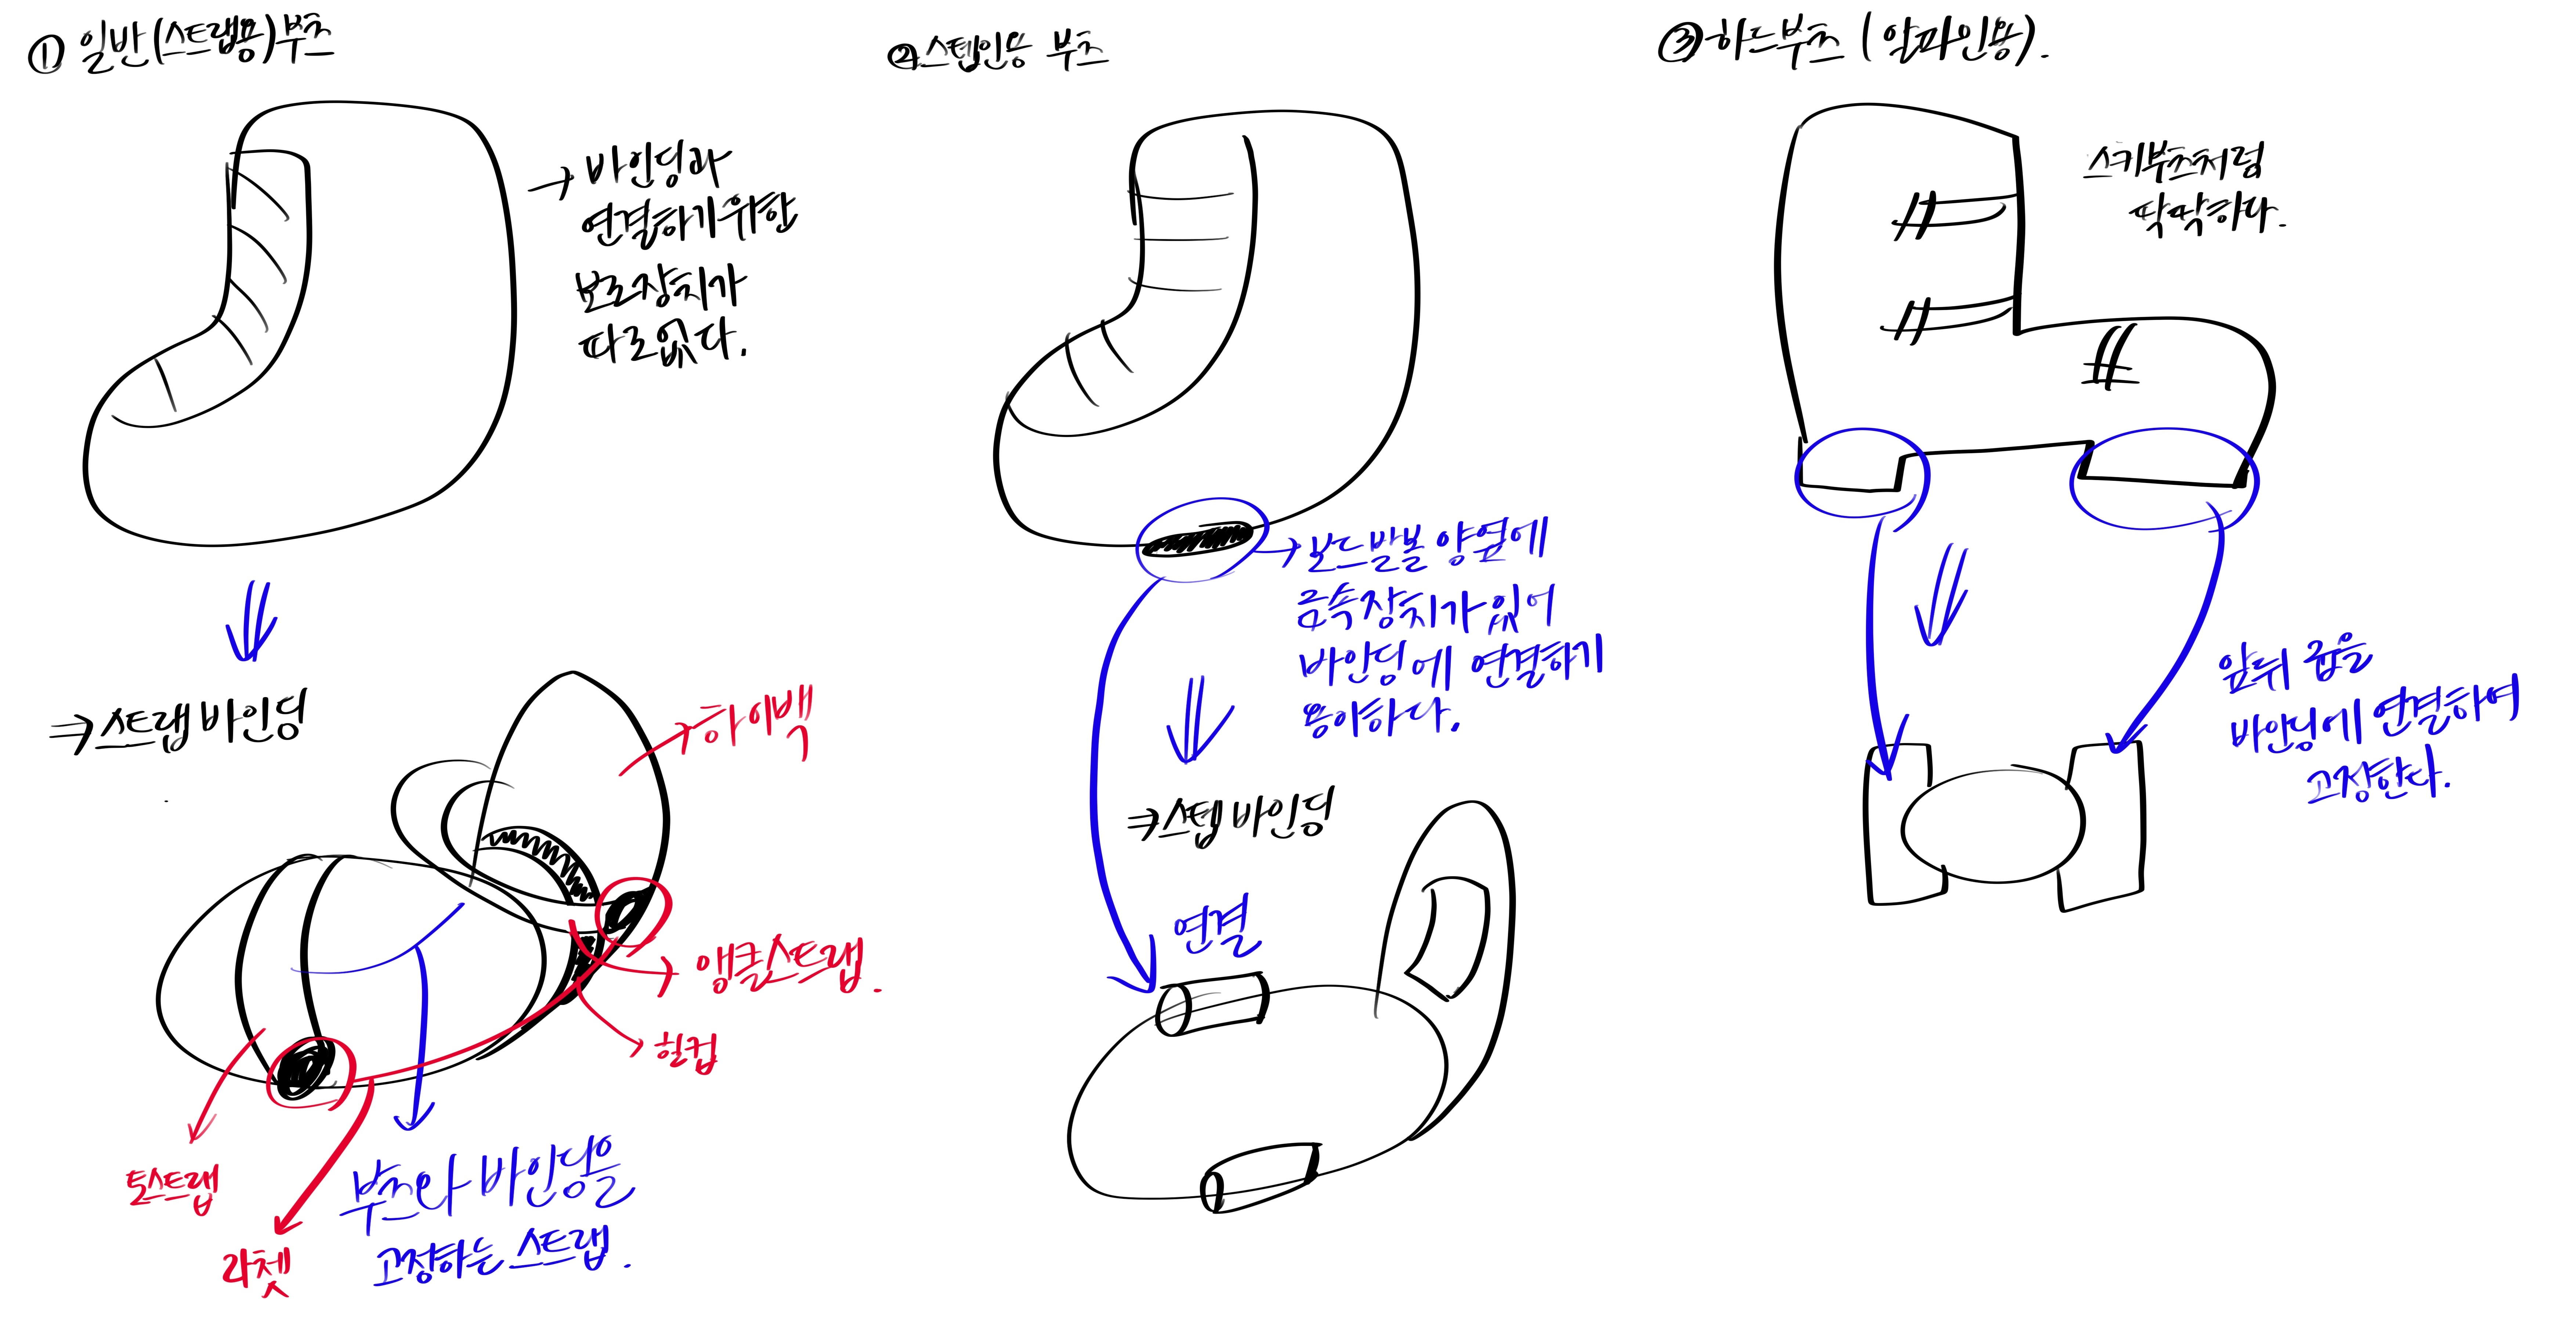 ① 일반(스트랩용)부츠
→ 바인딩과
연결하기위한
보조장치가
따로없다.
⇒ 스트랩 바인딩
하이백
앵클스트랩.
힐컵
토스트랩
라쳇
부츠와 바인딩을
고정하는 스트랩.
② 스텝인용 부츠
→ 보드발볼 양옆에
금속장치가 있어
바인딩에 연결하기
용이하다.
⇒ 스텝 바인딩
연결
③ 하드부츠 (알파인용).
스키부츠처럼
딱딱하다.
앞뒤 굽을
바인딩에 연결하여
고정한다.